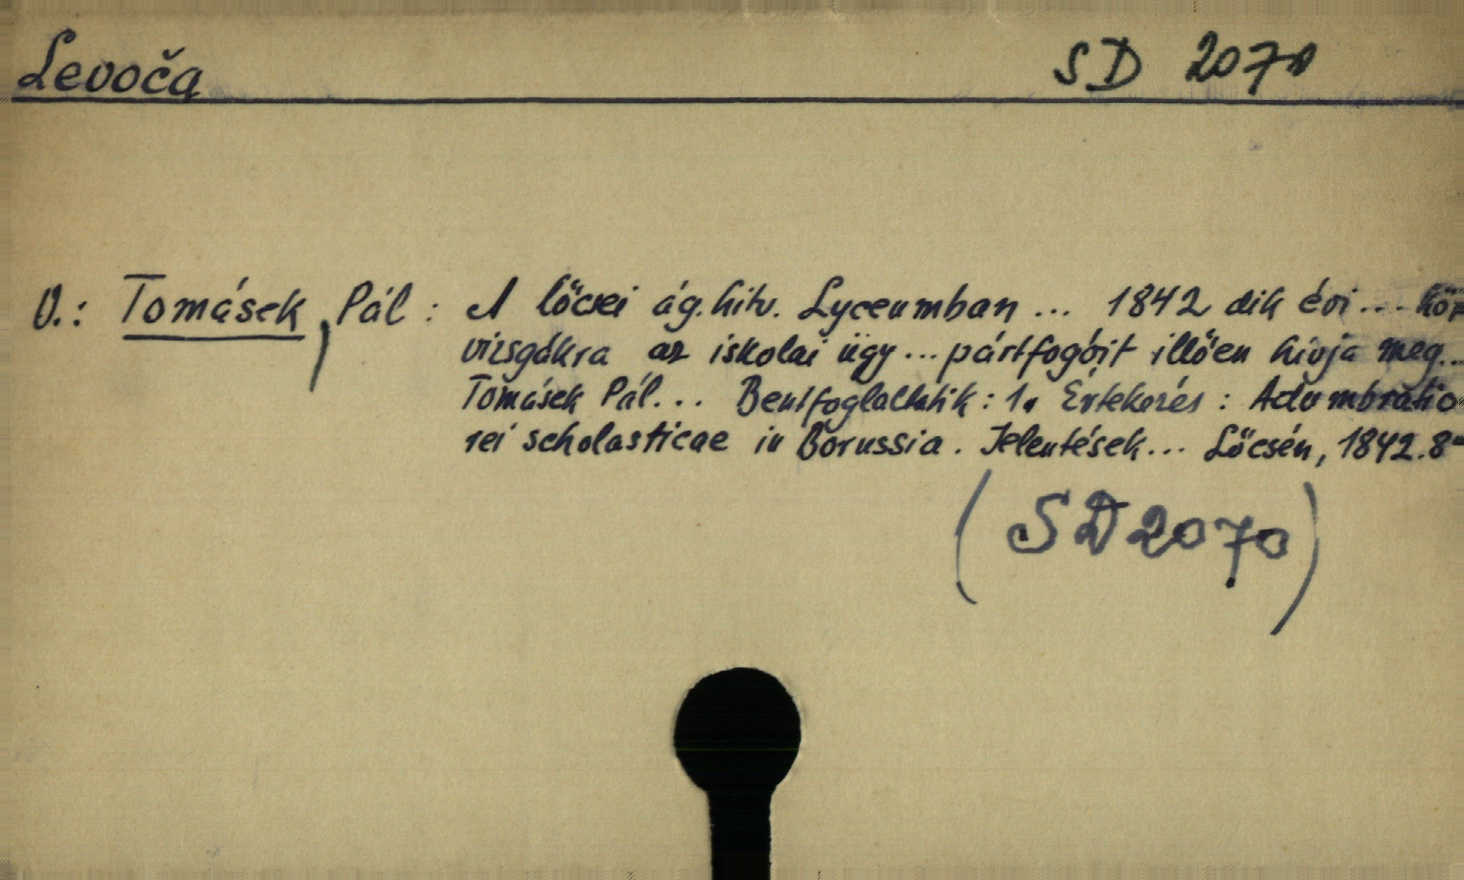 Levoča SD 2070
V.: Tomásek, Pál: A lőcsei ág. hitv. Lyceumban ... 1842 dik évi ... köz
vizsgákra az iskolai ügy ... pártfogóit illően hivja meg...
Tomásek Pál... Bentfoglaltatik: 1. Értekezés: Adumbratio
rei scholasticae in Borussia. Jelentések... Lőcsén, 1842. 8°
(SD 2070)